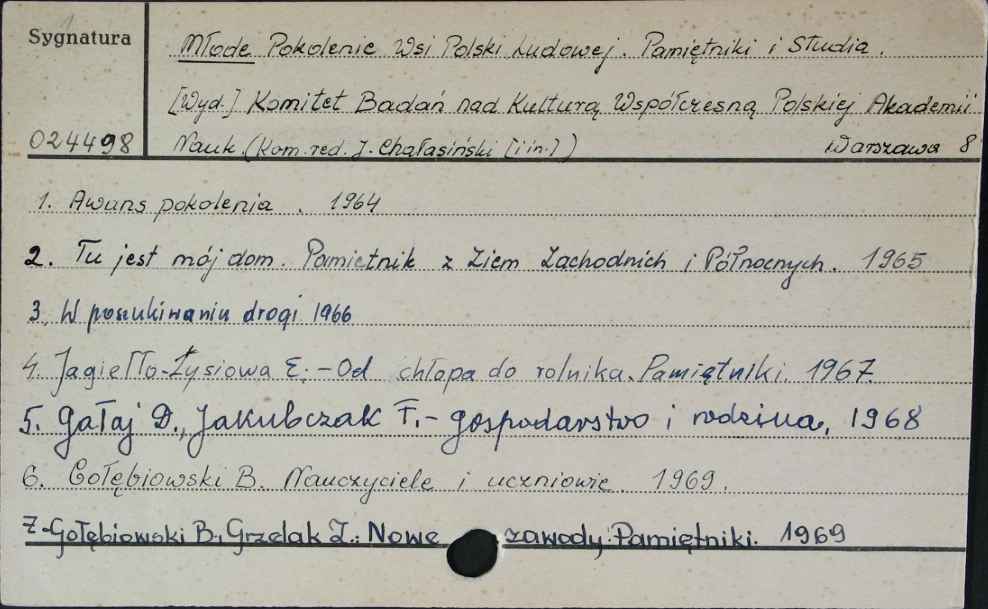 Sygnatura
Młode Pokolenie Wsi Polski Ludowej. Pamiętniki i Studia.
[Wyd.] Komitet Badań nad Kulturą Współczesną Polskiej Akademii
024498
Nauk (Kom. red. J. Chałasiński [i in.]) Warszawa 8
1. Awans pokolenia. 1964
2. Tu jest mój dom. Pamiętnik z Ziem Zachodnich i Północnych. 1965
3. W poszukiwaniu drogi 1966
4. Jagiełło-Łysiowa E. - Od chłopa do rolnika. Pamiętniki. 1967.
5. Gałaj D., Jakubczak F. - Gospodarstwo i rodzina, 1968
6. Gołębiowski B. Nauczyciele i uczniowie. 1969.
7. Gołębiowski B., Grzelak Z.: Nowe zawody. Pamiętniki. 1969